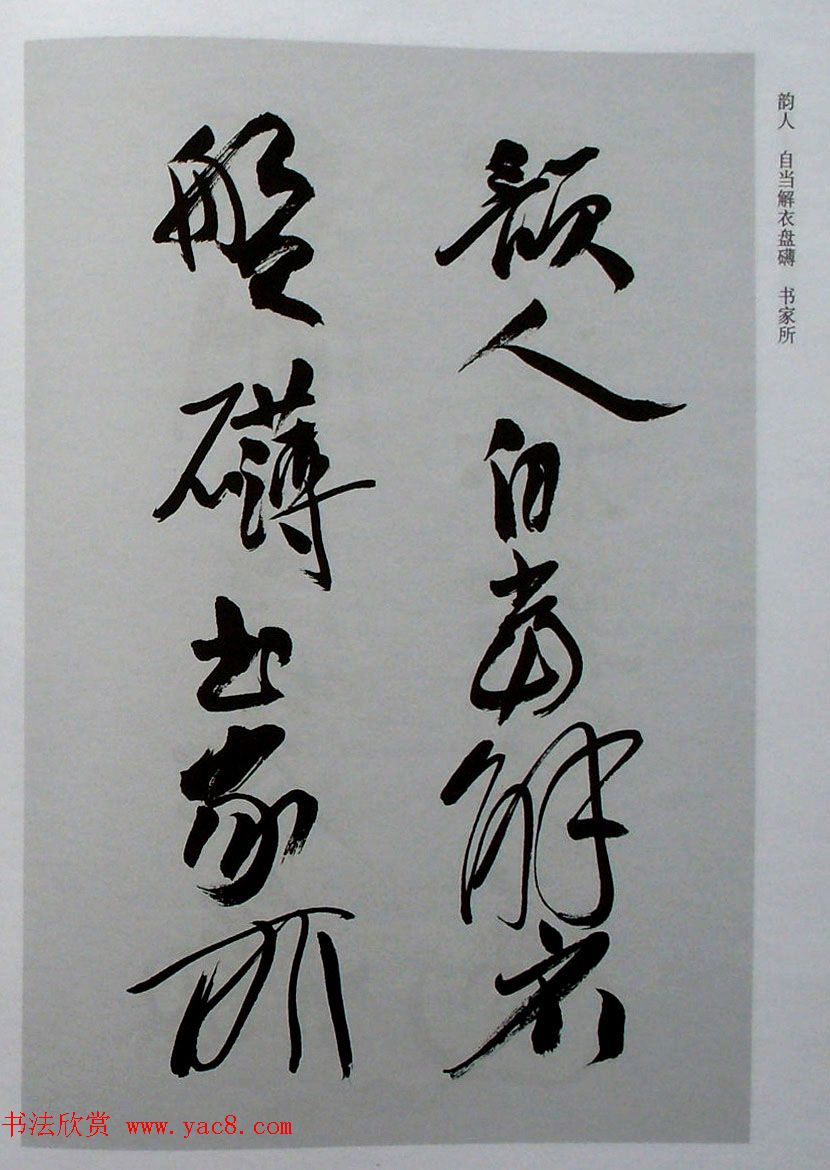 韵人 自当解衣盘礴 书家所
韻人自當解衣
盤礴書家所
书法欣赏 www.yac8.com